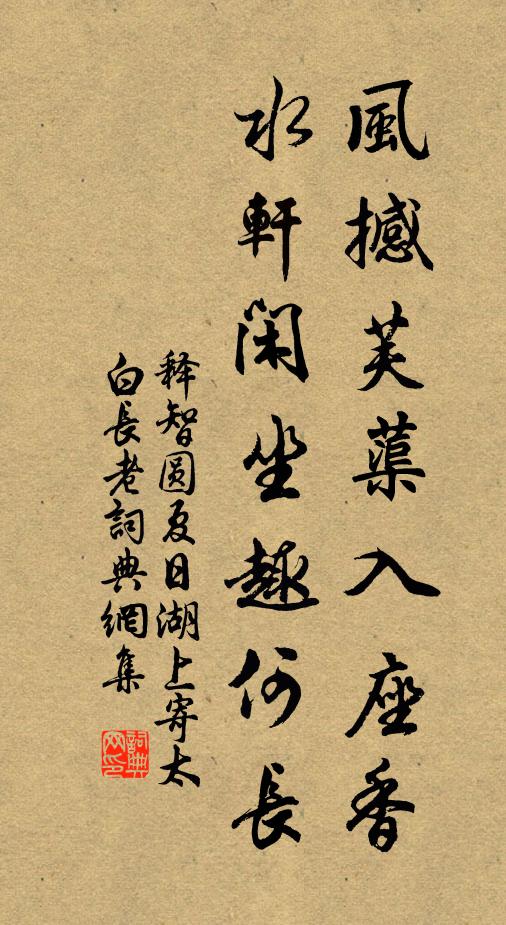 風撼芙蕖入座香
水軒閑坐趣何長
释智圆夏日湖上寄太
白長老詞典網集
詞典網印